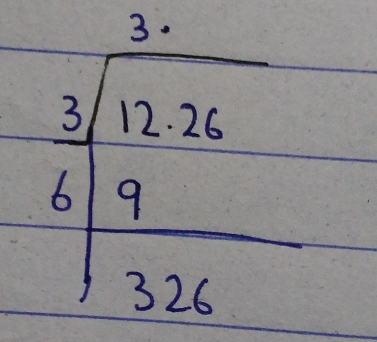 3.
3 12.26
6 9
326